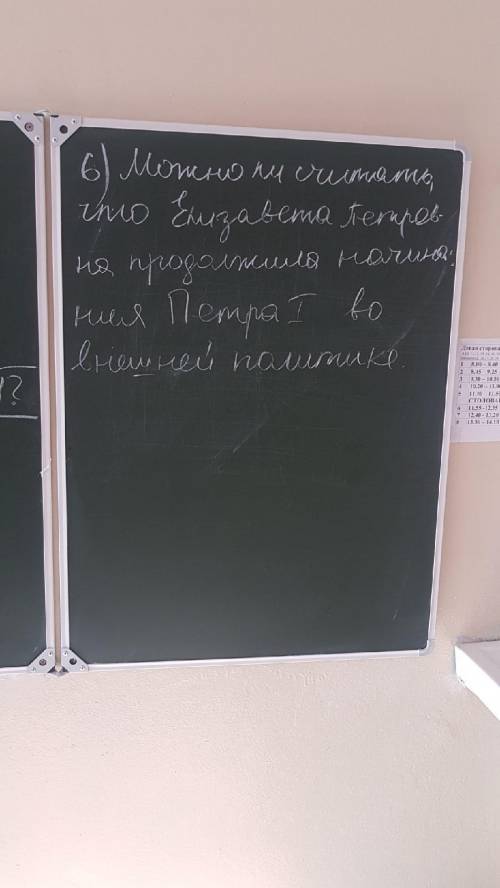 6) Можно ли считать,
что Елизавета Петров-
на продолжила начина-
ния Петра I во
внешней политике.
?
1 8.00 - 8.40
2 8.45 - 9.25